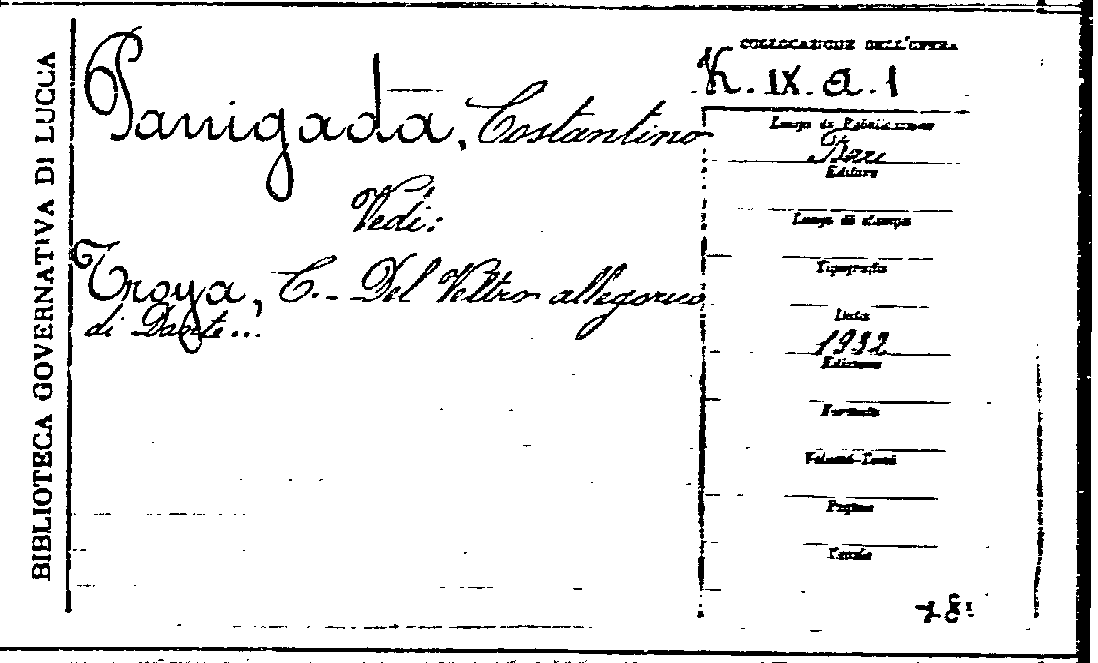 BIBLIOTECA GOVERNATIVA DI LUCCA
Panigada, Costantino
Vedi:
Troya, C. - Del Veltro allegorico
di Dante...
COLLOCAZIONE DELL'OPERA
K. IX. a. 1
Luogo di Pubblicazione
Bari
Editore
Luogo di stampa
Tipografia
Data
1932
Edizione
Formato
Volumi-Tomi
Pagine
Tavole